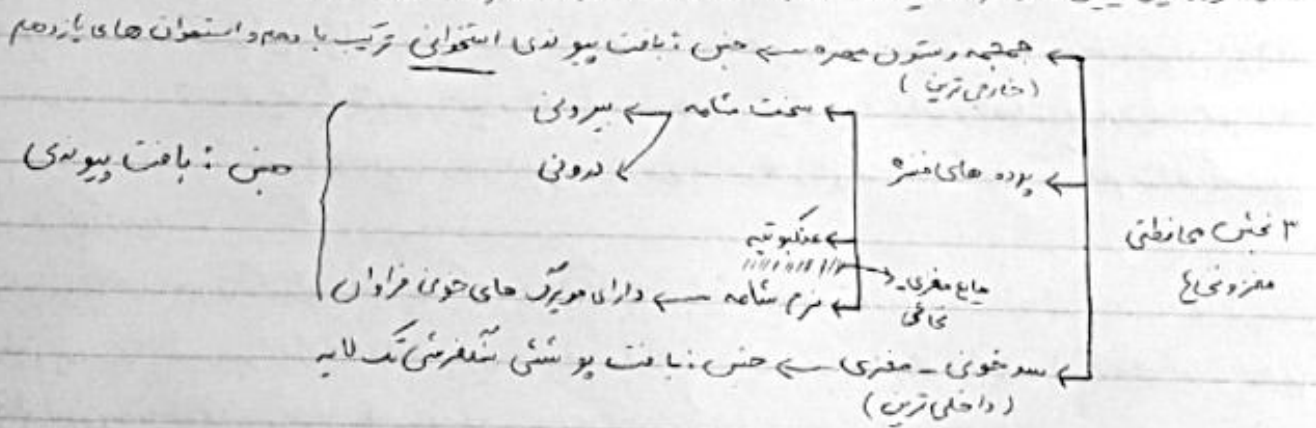 جمجمه و ستون مهره ← جنس : بافت پیوندی استخوانی ترکیب با دهم و استخوان های یازدهم
(خارجی ترین)
۳ بخش محافظتی
مغز و نخاع
پرده های مننژ
سخت شامه ← بیرونی
درونی
عنکبوتیه
مایع مغزی-
نخاعی
نرم شامه ← دارای مویرگ های خونی فراوان
جنس : بافت پیوندی
سد خونی - مغزی ← جنس : بافت پوششی سنگفرشی تک لایه
(داخلی ترین)